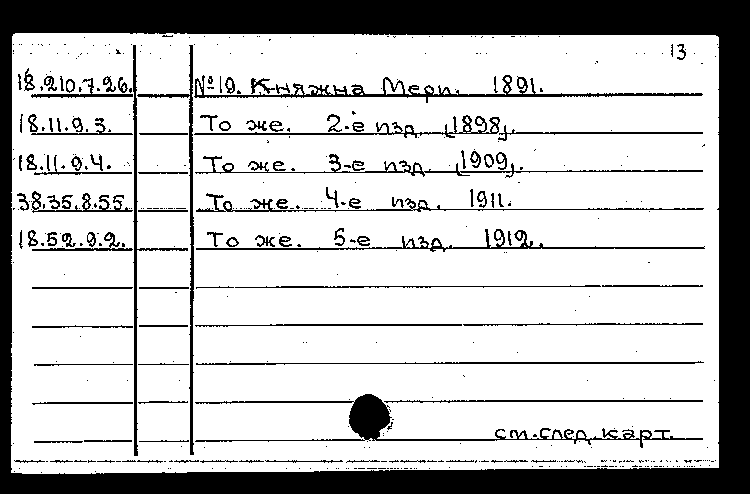 13
18.210.7.26. №19. Княжна Мери. 1891.
18.11.9.3. То же. 2-е изд. [1898].
18.11.9.4. То же. 3-е изд. [1909].
38.35.8.55. То же. 4-е изд. 1911.
18.52.9.2. То же. 5-е изд. 1912.
см. след. карт.